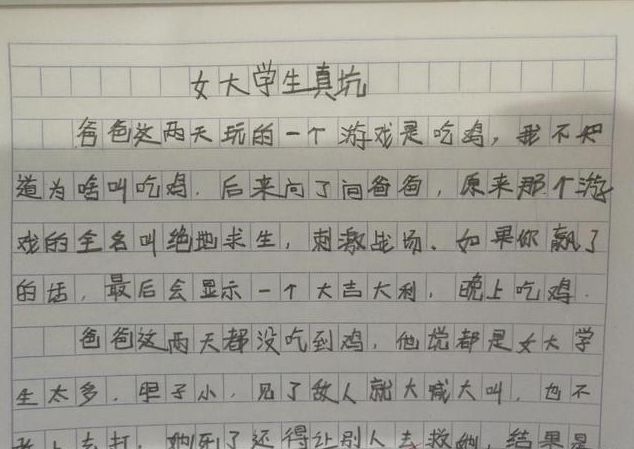 女大学生真坑
爸爸这两天玩的一个游戏是吃鸡，我不知
道为啥叫吃鸡．后来问了问爸爸，原来那个游
戏的全名叫绝地求生，刺激战场、如果你飙了
的话，最后会显示一个大吉大利，晚上吃鸡．
爸爸这两天都没吃到鸡，他说都是女大学
生太多．胆子小，见了敌人就大喊大叫，也不
敢上去打，她死了还得让别人去救她，结果是